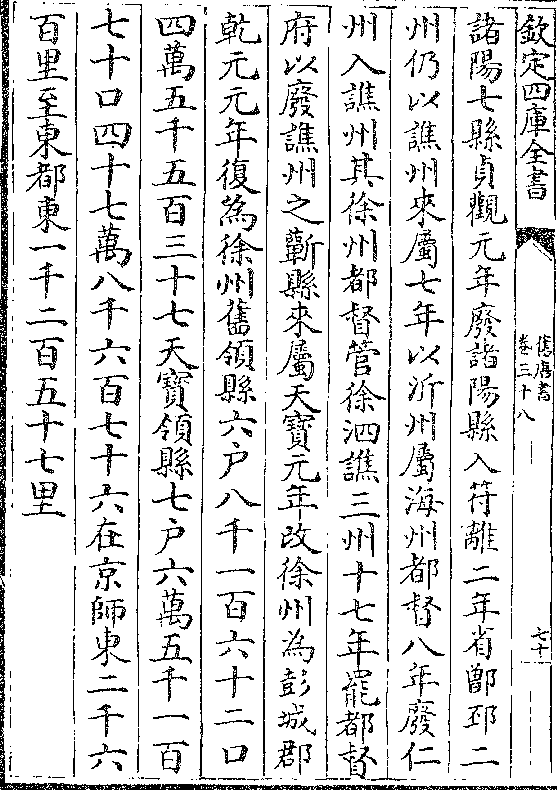 欽定四庫全書
舊唐書
卷三十八
七十
諸陽七縣貞觀元年廢諸陽縣入符離二年省鄫邳二
州仍以譙州來屬七年以沂州屬海州都督八年廢仁
州入譙州其徐州都督管徐泗譙三州十七年罷都督
府以廢譙州之蘄縣來屬天寶元年改徐州為彭城郡
乾元元年復為徐州舊領縣六户八千一百六十二口
四萬五千五百三十七天寶領縣七户六萬五千一百
七十口四十七萬八千六百七十六在京師東二千六
百里至東都東一千二百五十七里